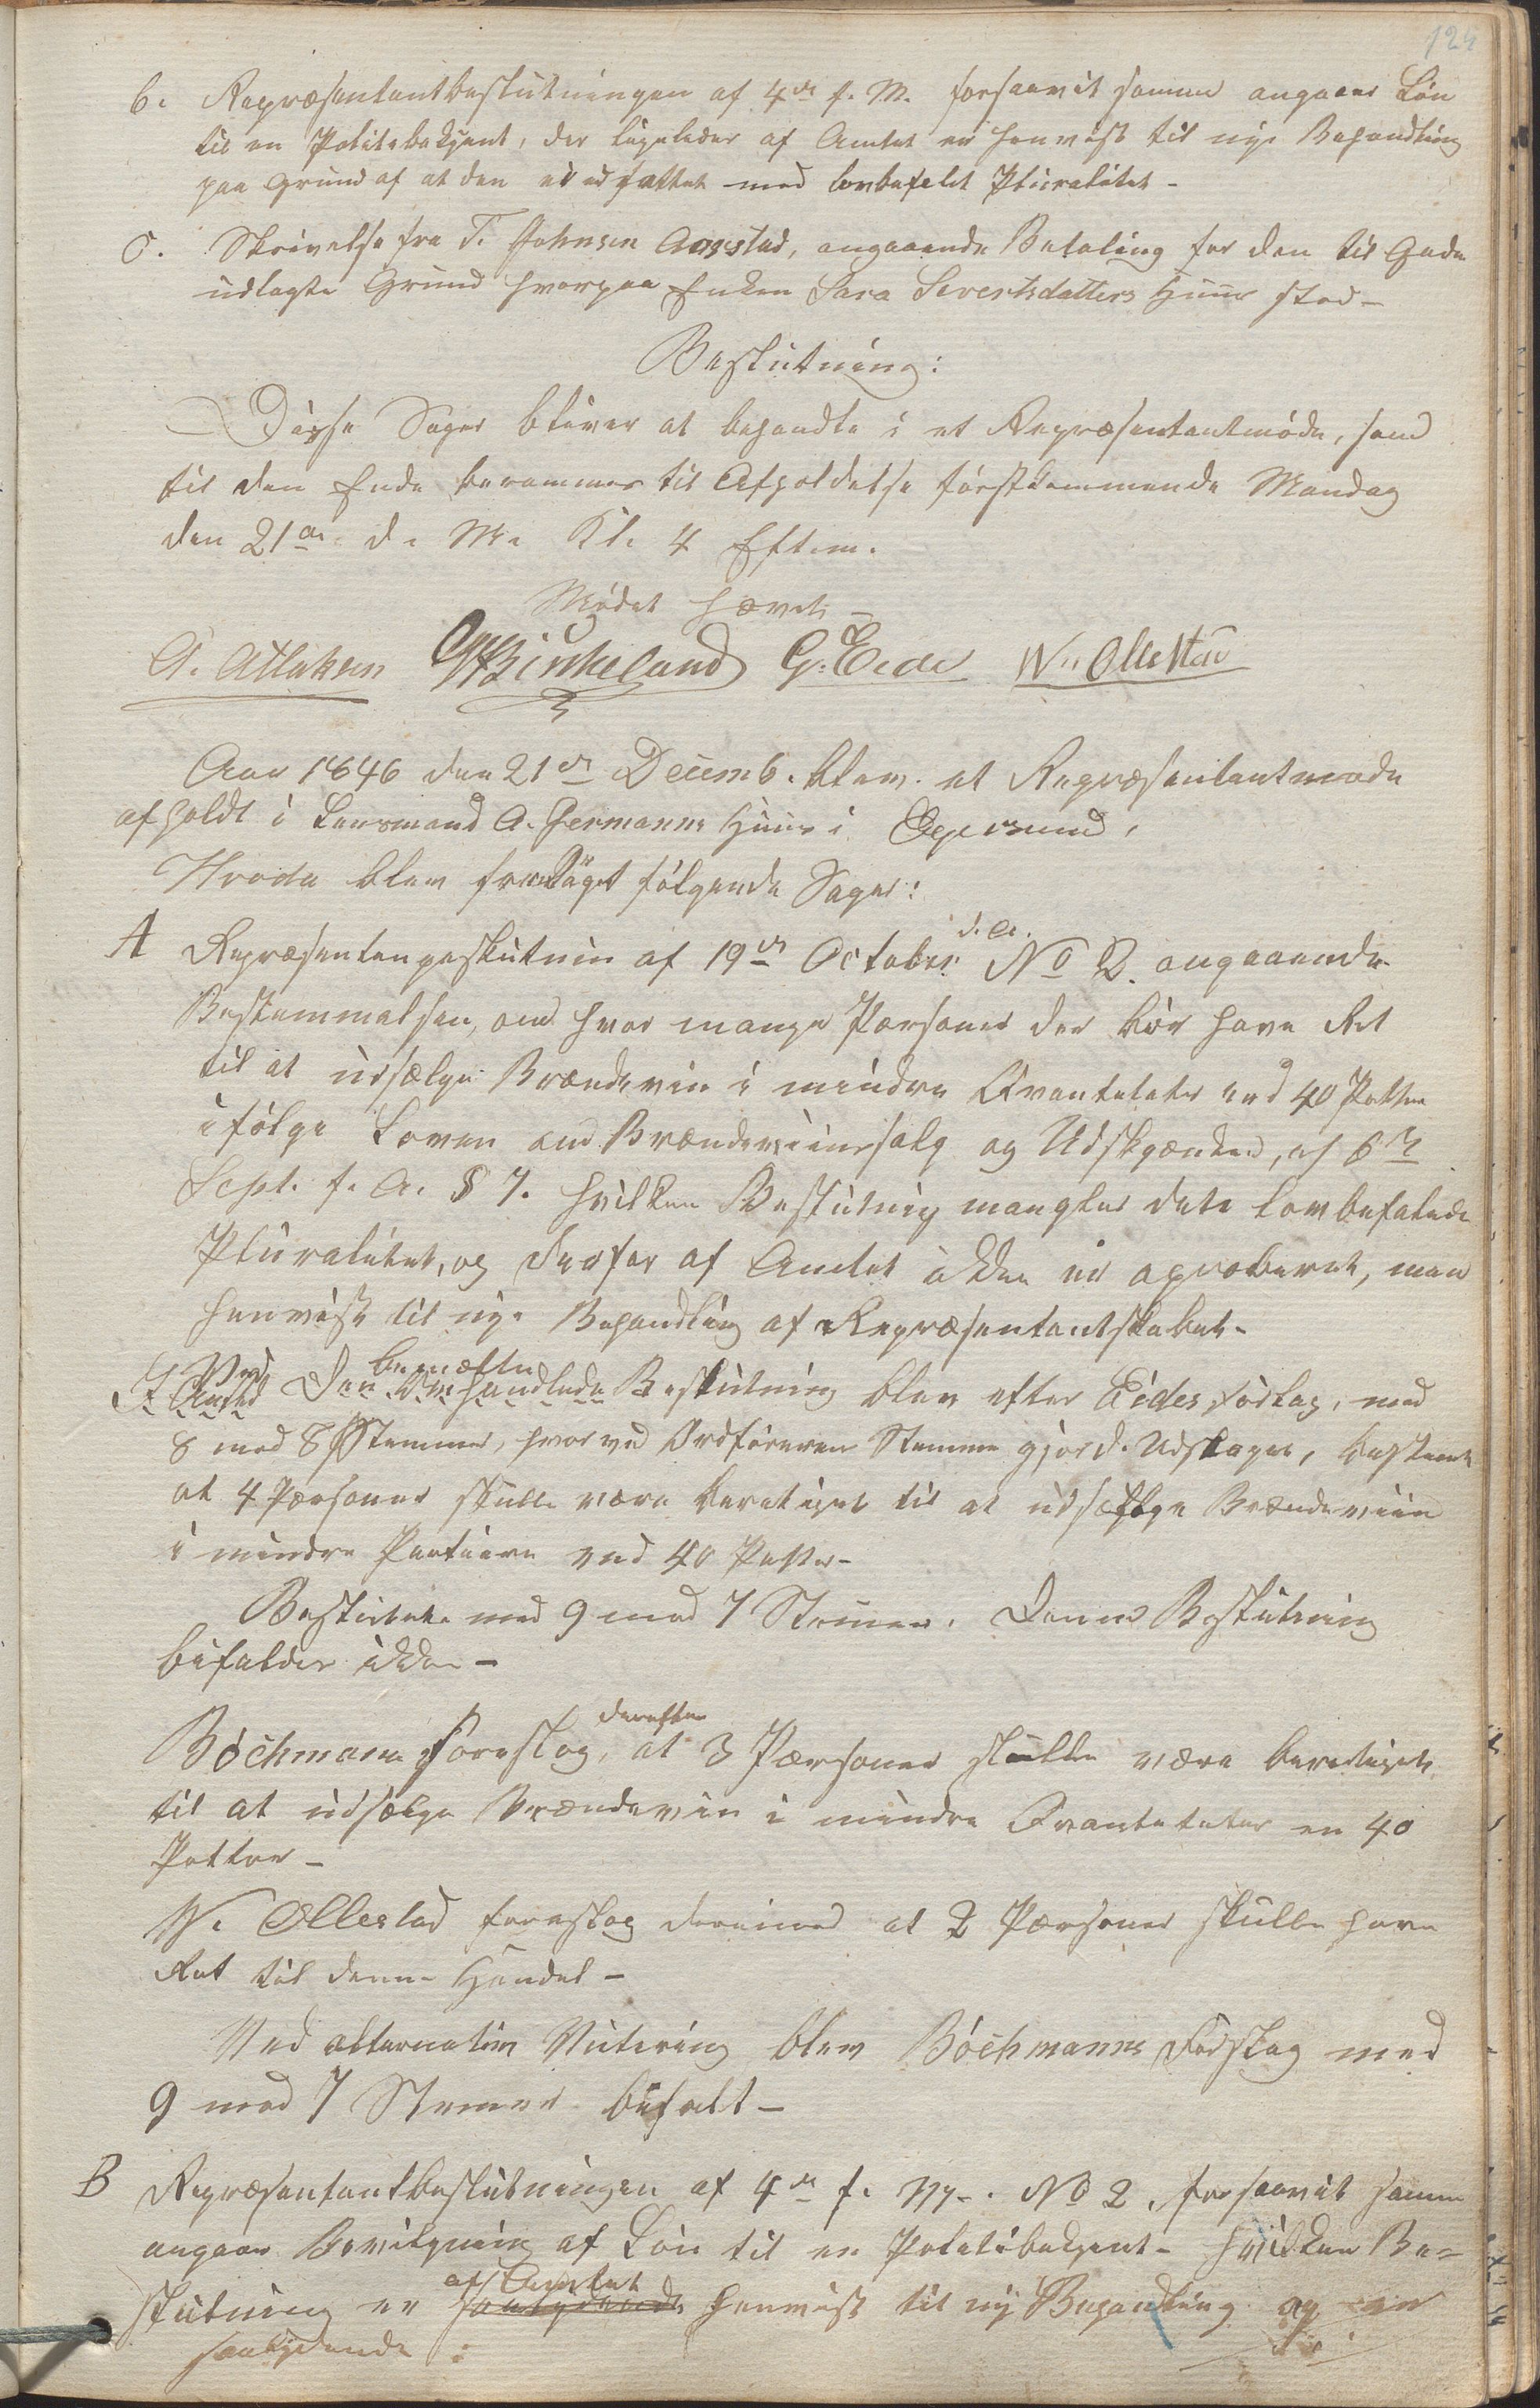 124
b. Repræsentantbeslutningen af 4de f. M. forsaavit samme angaaer Løn
til en Politibetjent, der ligeledes af Amtet er henvist til nye Behandling
paa Grund af at den ei er fattet med lovbefalet Pluralitet -
c. Skrivelse fra T. Johnsen Aarstad, angaaende Betaling for den til Gade
udlagte Grund hvorpaa Enken Sara Sivertsdatters Huus stod -
Beslutning:
Disse Sager bliver at behandle i et Repræsentantmøde, som
til den Ende berammes til Afholdelse førstkommende Mandag
den 21de d. M. Kl. 4 Efterm.
Mødet hævet -
A. Atlaksen Birkeland G. Eide W. Ollestad
Aar 1846 den 21de Decemb. blev et Repræsentantmøde
afholdt i Lensmand A. Hermanns Huus i Egersund,
Hvoda blev fremlagt følgende Sager:
A Repræsentanbeslutnin af 19de October d. A. No 2. angaaende
Bestemmelsen, om hvor mange Personer der bør have Ret
til at udsælge Brændeviin i mindre Qvantiteter end 40 Potter
ifølge Loven om Brændeviinssalg og Udskjænken, af 6te
Sept. f. A. § 7. hvilken Beslutnig mangler dete lovbefalede
Pluralitet, og derfor af Amtet ikke er aproberet, men
henvist til nye Behandling af Repræsentantskabet -
Ved den benæfte Beslutning blev efter Eides forslag, med
8 mod 8 Stemmer, hvorved Ordførerens Stemme gjorde Udslaget, bestemt
at 4 Personer skulle være berettiget til at udsælge Brændeviin
i mindre Partiere end 40 Potter -
Besluttet med 9 mod 7 Stemmer. Denne Beslutning
bifaldes ikke -
Böchmann foreslog derefter, at 3 Personer skulle være berettiget
til at udsælge Brændeviin i mindre Qvantiteter en 40
Potter -
W. Ollestad foreslog derimod at 2 Personer skulle have
Ret til denne Handel -
Ved alternativ Vutering blev Böchmanns Forslag med
9 mod 7 Stemmer bifalt -
B Repræsentantbeslutningen af 4de f. M. No 2, forsaavit samme
angaar Bevilgning af Løn til en Politibetjent - hvilken Be=
slutning er af Amtet henvist til ny Behandling og er
saalydende :